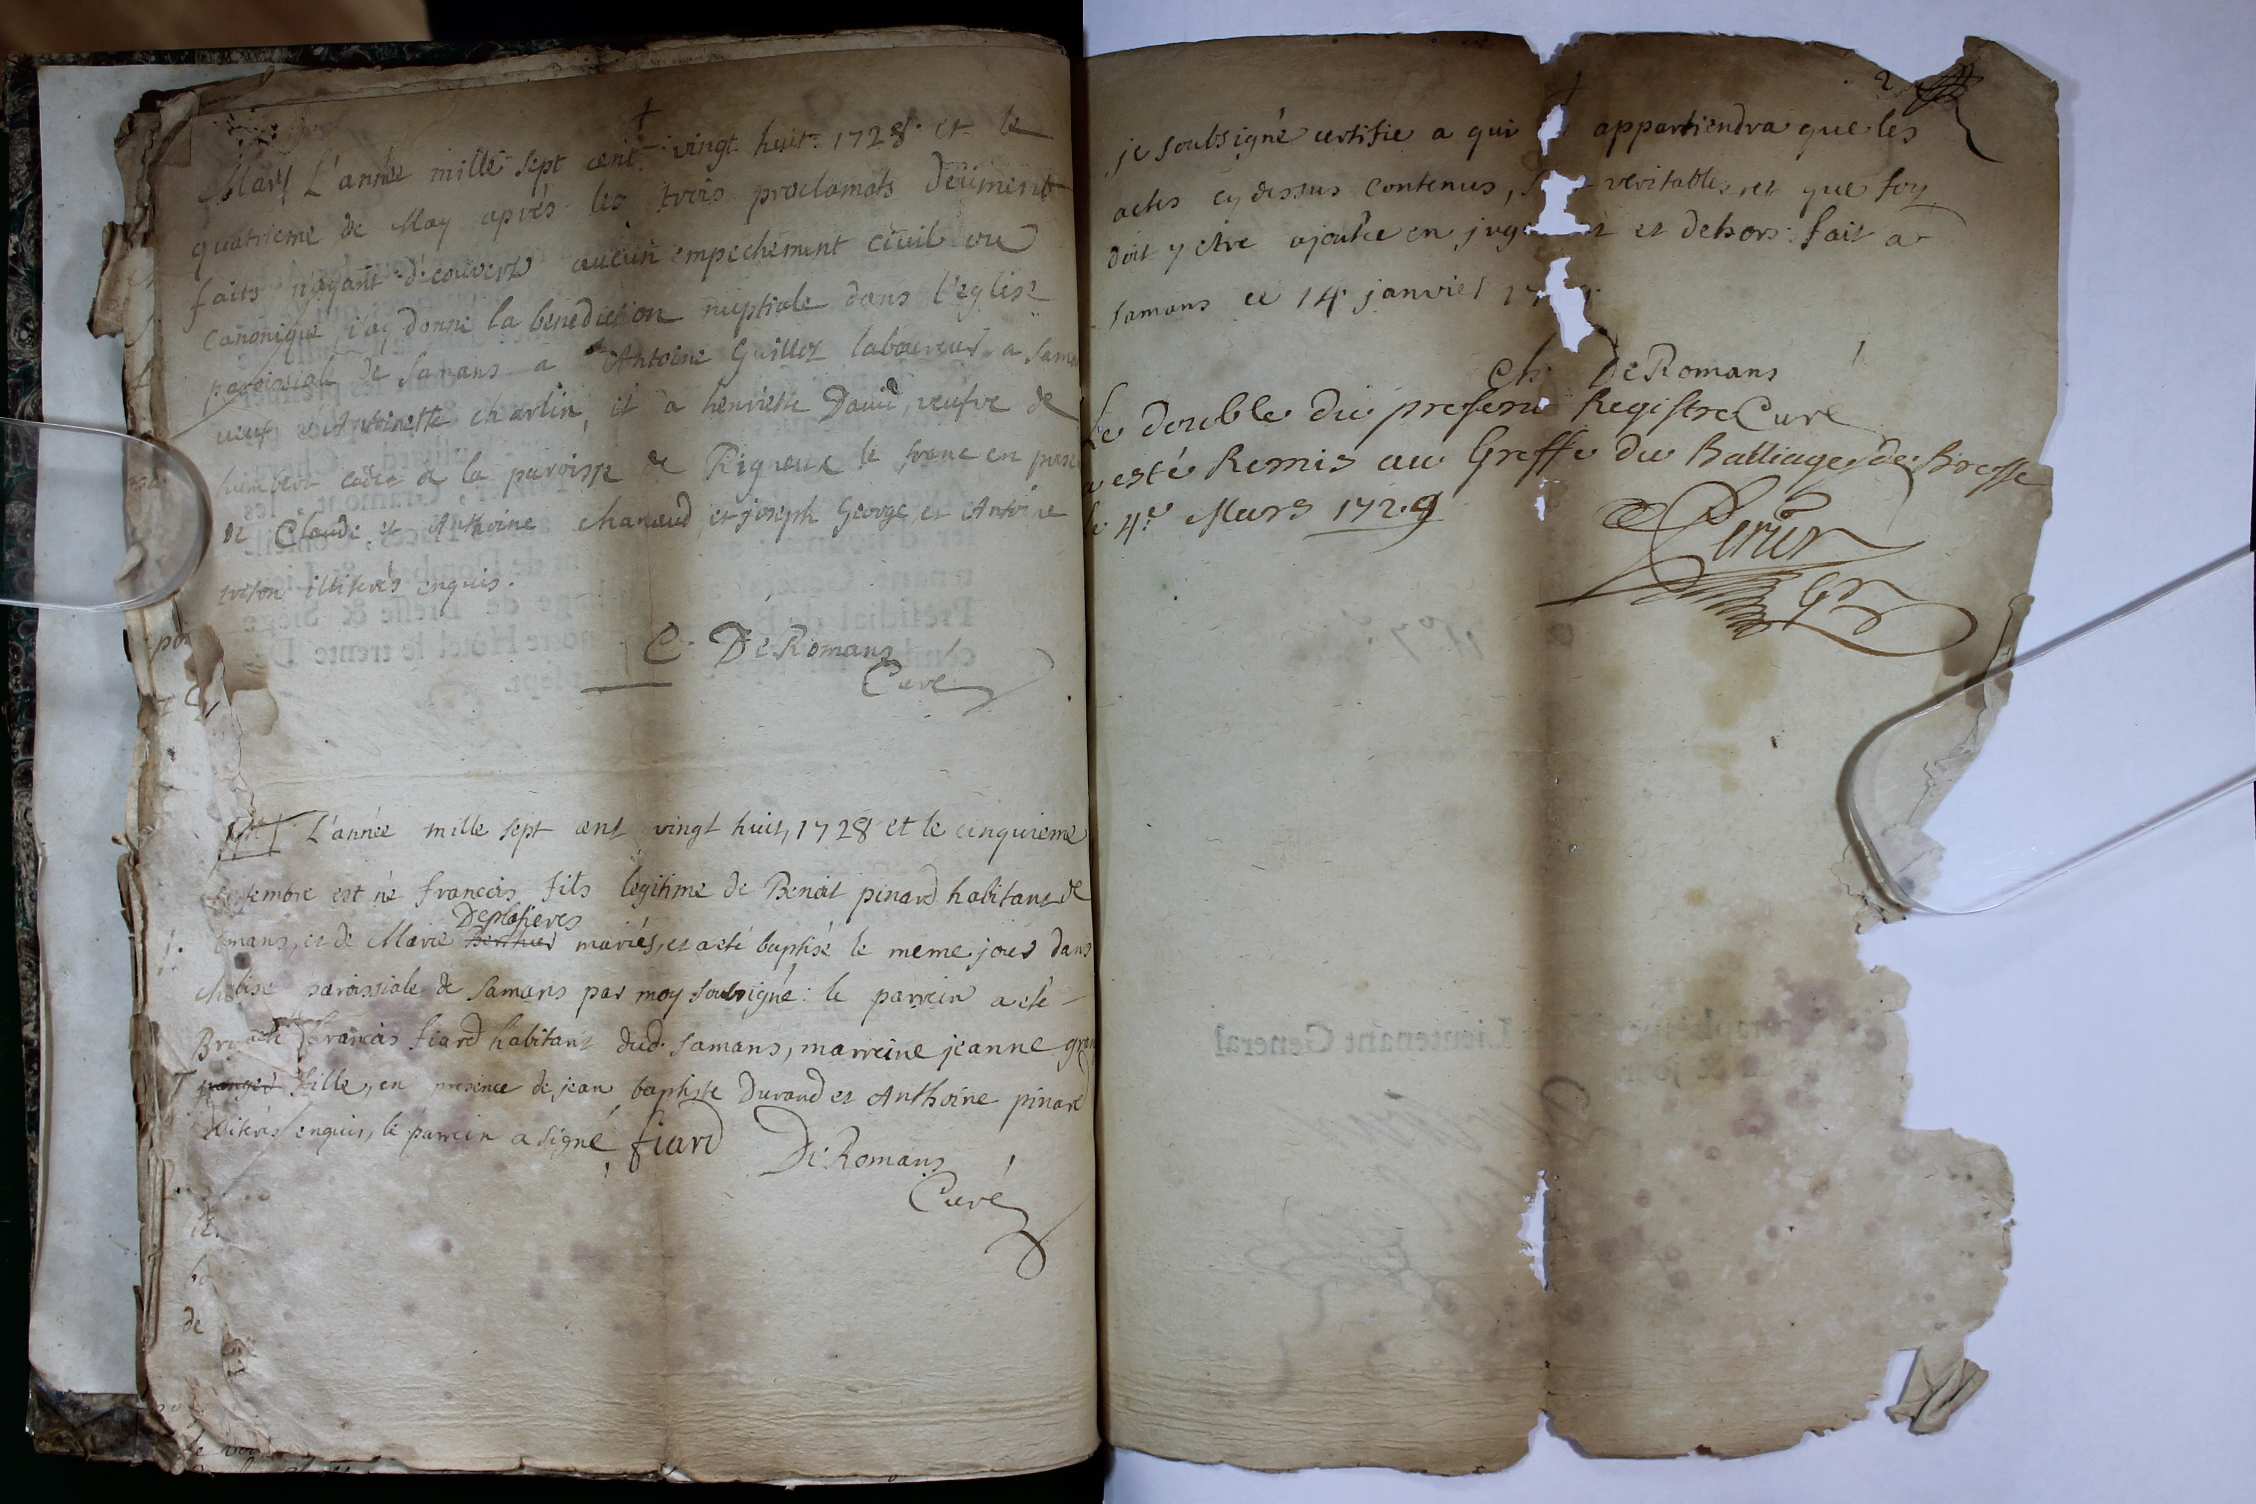 Mar. L'année mille sept cent vingt huit 1728. et le
quatrieme de May aprés les trois proclamats deüment
faits n'ayant découvert aucun empechement civil ou
canonique j'ay donné la benediction nuptiale dans l'eglise
paroissiale de Samans a Anthoine Guillot laboureur a Sama
veuf d'Antoinette charlin, et a henriette David, veufve de
humbert de la paroisse de Rigneux le franc en prese
de Claude et Anthoine chanaud, et joseph George et Antoine
illiterés enquis.
C. De Romans
Curé
L'année mille sept cent vingt huit, 1728 et le cinquieme
est né francois fils legitime de Benoit pinard habitant de
Deplasieres
mans, et de Marie mariés, et a eté baptisé le meme jour dans
paroissiale de Samans par moy soubsigné: le parrein a eté
francois fiard habitant dud. Samans, marreine jeanne gran
fille, en presence de jean baptiste Durand et Anthoine pinard
illiterés enquis, le parrein a signé fiard
De Romans
Curé
2
je soubsigné certifie a qui appartiendra que les
actes cy dessus contenus, veritables, et que foy
doit y etre ajoutée en jug t et dehors: fait a
Samans ce 14. janvier 17
Ch. De Romans
Curé
Le double du present Registre
a esté Remis au Greffe du Balliage de Bresse
le 4.e Mars 1729
Perier
Gr
Lieutenant General